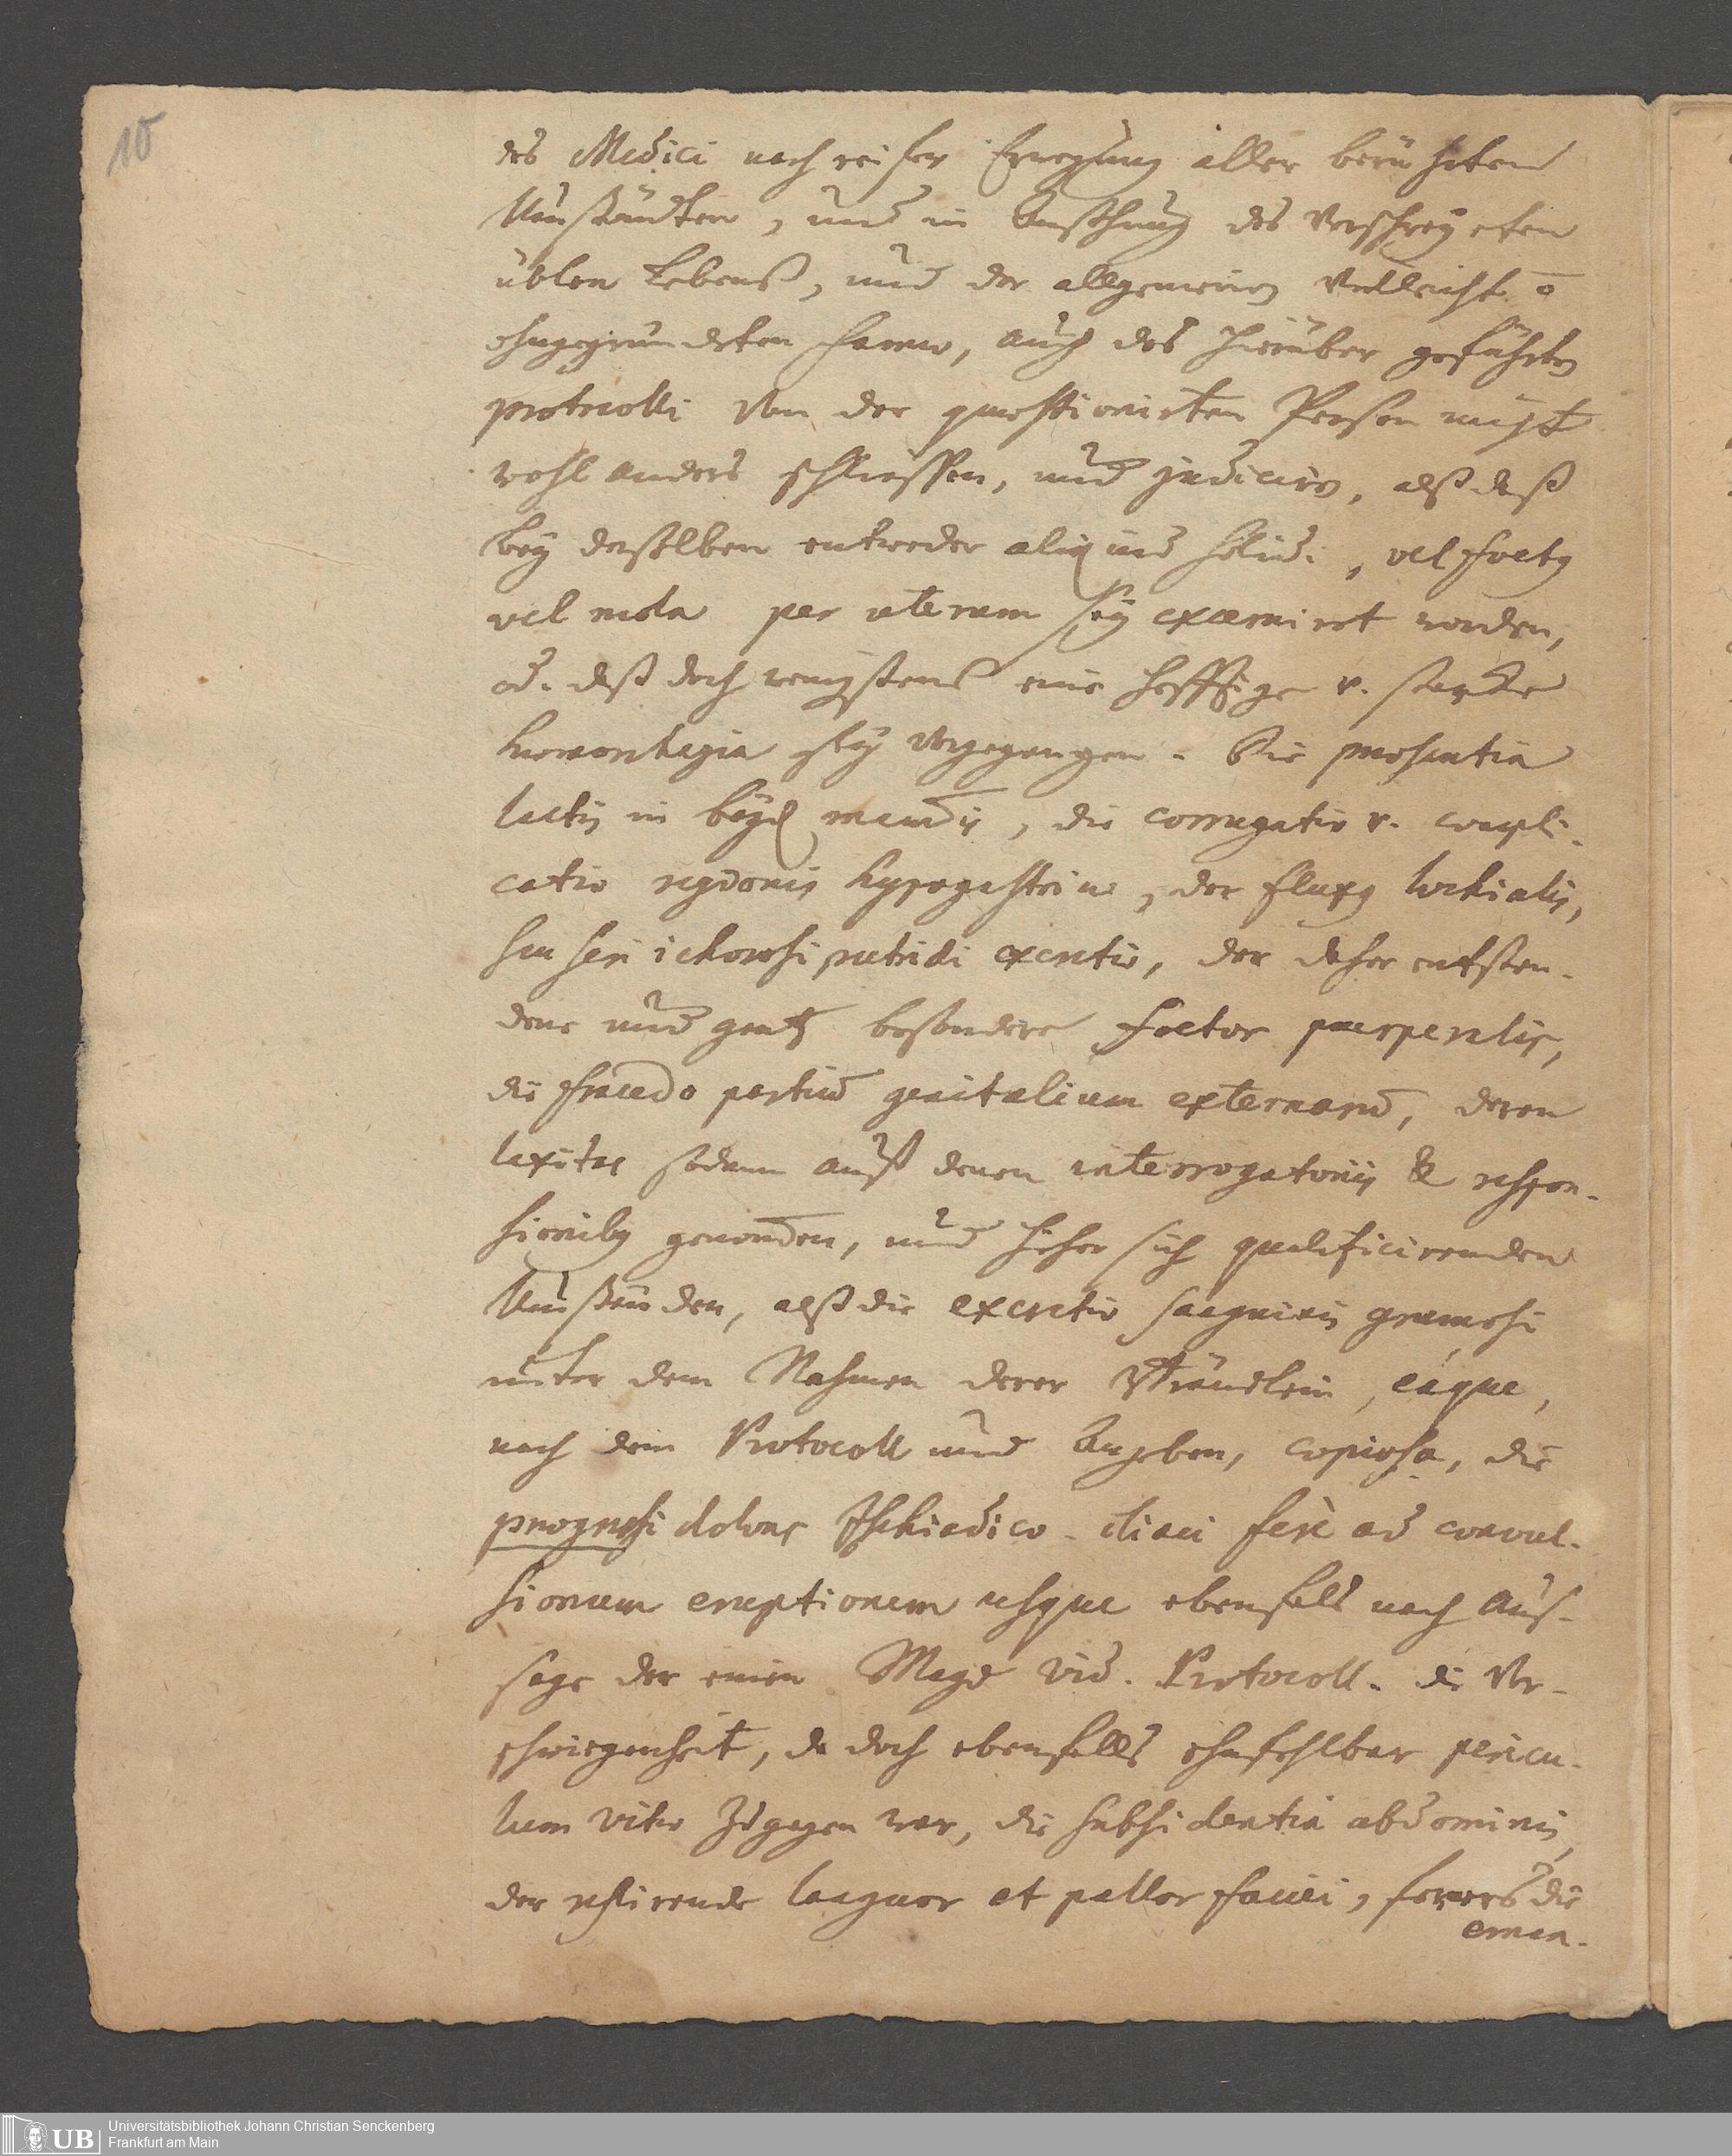 10
des Medici nach reifer Erwegung aller berührten
Umständten, und in Ansehung des verschreyeten
üblen Lebens, und der allgemeinen vielleicht o̅
ohngegründeten famae, auch des hierüber geführten
protocolli von der quaestionirten Person nicht
wohl anders schliessen, und judiciren, alß daß
bey derselben entweder aliquid solidi, vel foetus
vel mola per uterum sey excernirt worden,
od. daß doch wenigstens eine hefftige u. starcke
haemorrhagia sey vorgegangen. Die praesentia
lactis in beyd mammis, die corrugatio u. compli-
catio regionis hypogastricae, der fluxus lochialis,
seu seri ichorosi putridi excretio, der daher entsten-
dene und gantz besondere foetor puerperalis,
die fracedo partium genitalium externarum, deren
laxitas sodann auß denen interrogatoriis & respon-
sionibus genommen, und hieher sich qualificirenden
Umständen, alß die excretio sanguinis grumosi
unter dem Nahmen derer Sträudlein, eáque,
nach dem Protocoll und Angeben, copiosa, die
progressi doloris Ischiadico-iliaci ferè ad convul-
sionum eruptionem usque ebenfals nach Aus-
sage der einen Magd vid. Protocoll. die Ver-
schwiegenheit, da doch ebenfalls ohnfehlbar pericu-
lum vitae zugegen war, die subsidentia abdominis,
der restirende languor et pallor faciei, ferners die
eman-
Universitätsbibliothek Johann Christian Senckenberg
Frankfurt am Main
UB